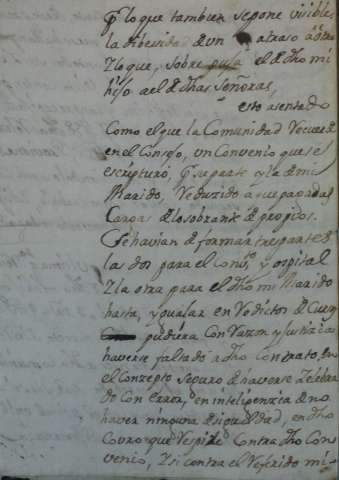 q.e lo que tambien se pone visible
la diberidad de un atraso a otro
Y lo que, sobre pasa el dho mi
hijo a el de dhas Señoras,
esto asentado
Como el que la Comunidad Vecurre
en el Consejo, un Convenio que se
escripturó, q.e su parte y la de mi
Marido, Veducido a que pagadas
Cargas de los obrante de propios.
Se havian de formar tres partes
las dos para el Conv.to y ospital
Y la otra para el dho mi Marido
hasta, ygualar en Vedictos de
pudiera Con Vazon y Justicia
haverse faltado a dho Contrato, en
el Conzepto seguro de haverse Zelebra
do Con Error, en intelipenzia de no
haver ninguna desigualdad, en dho
Covro que Vespide Contra dho Con
venio, Y si contra el Veferido mi